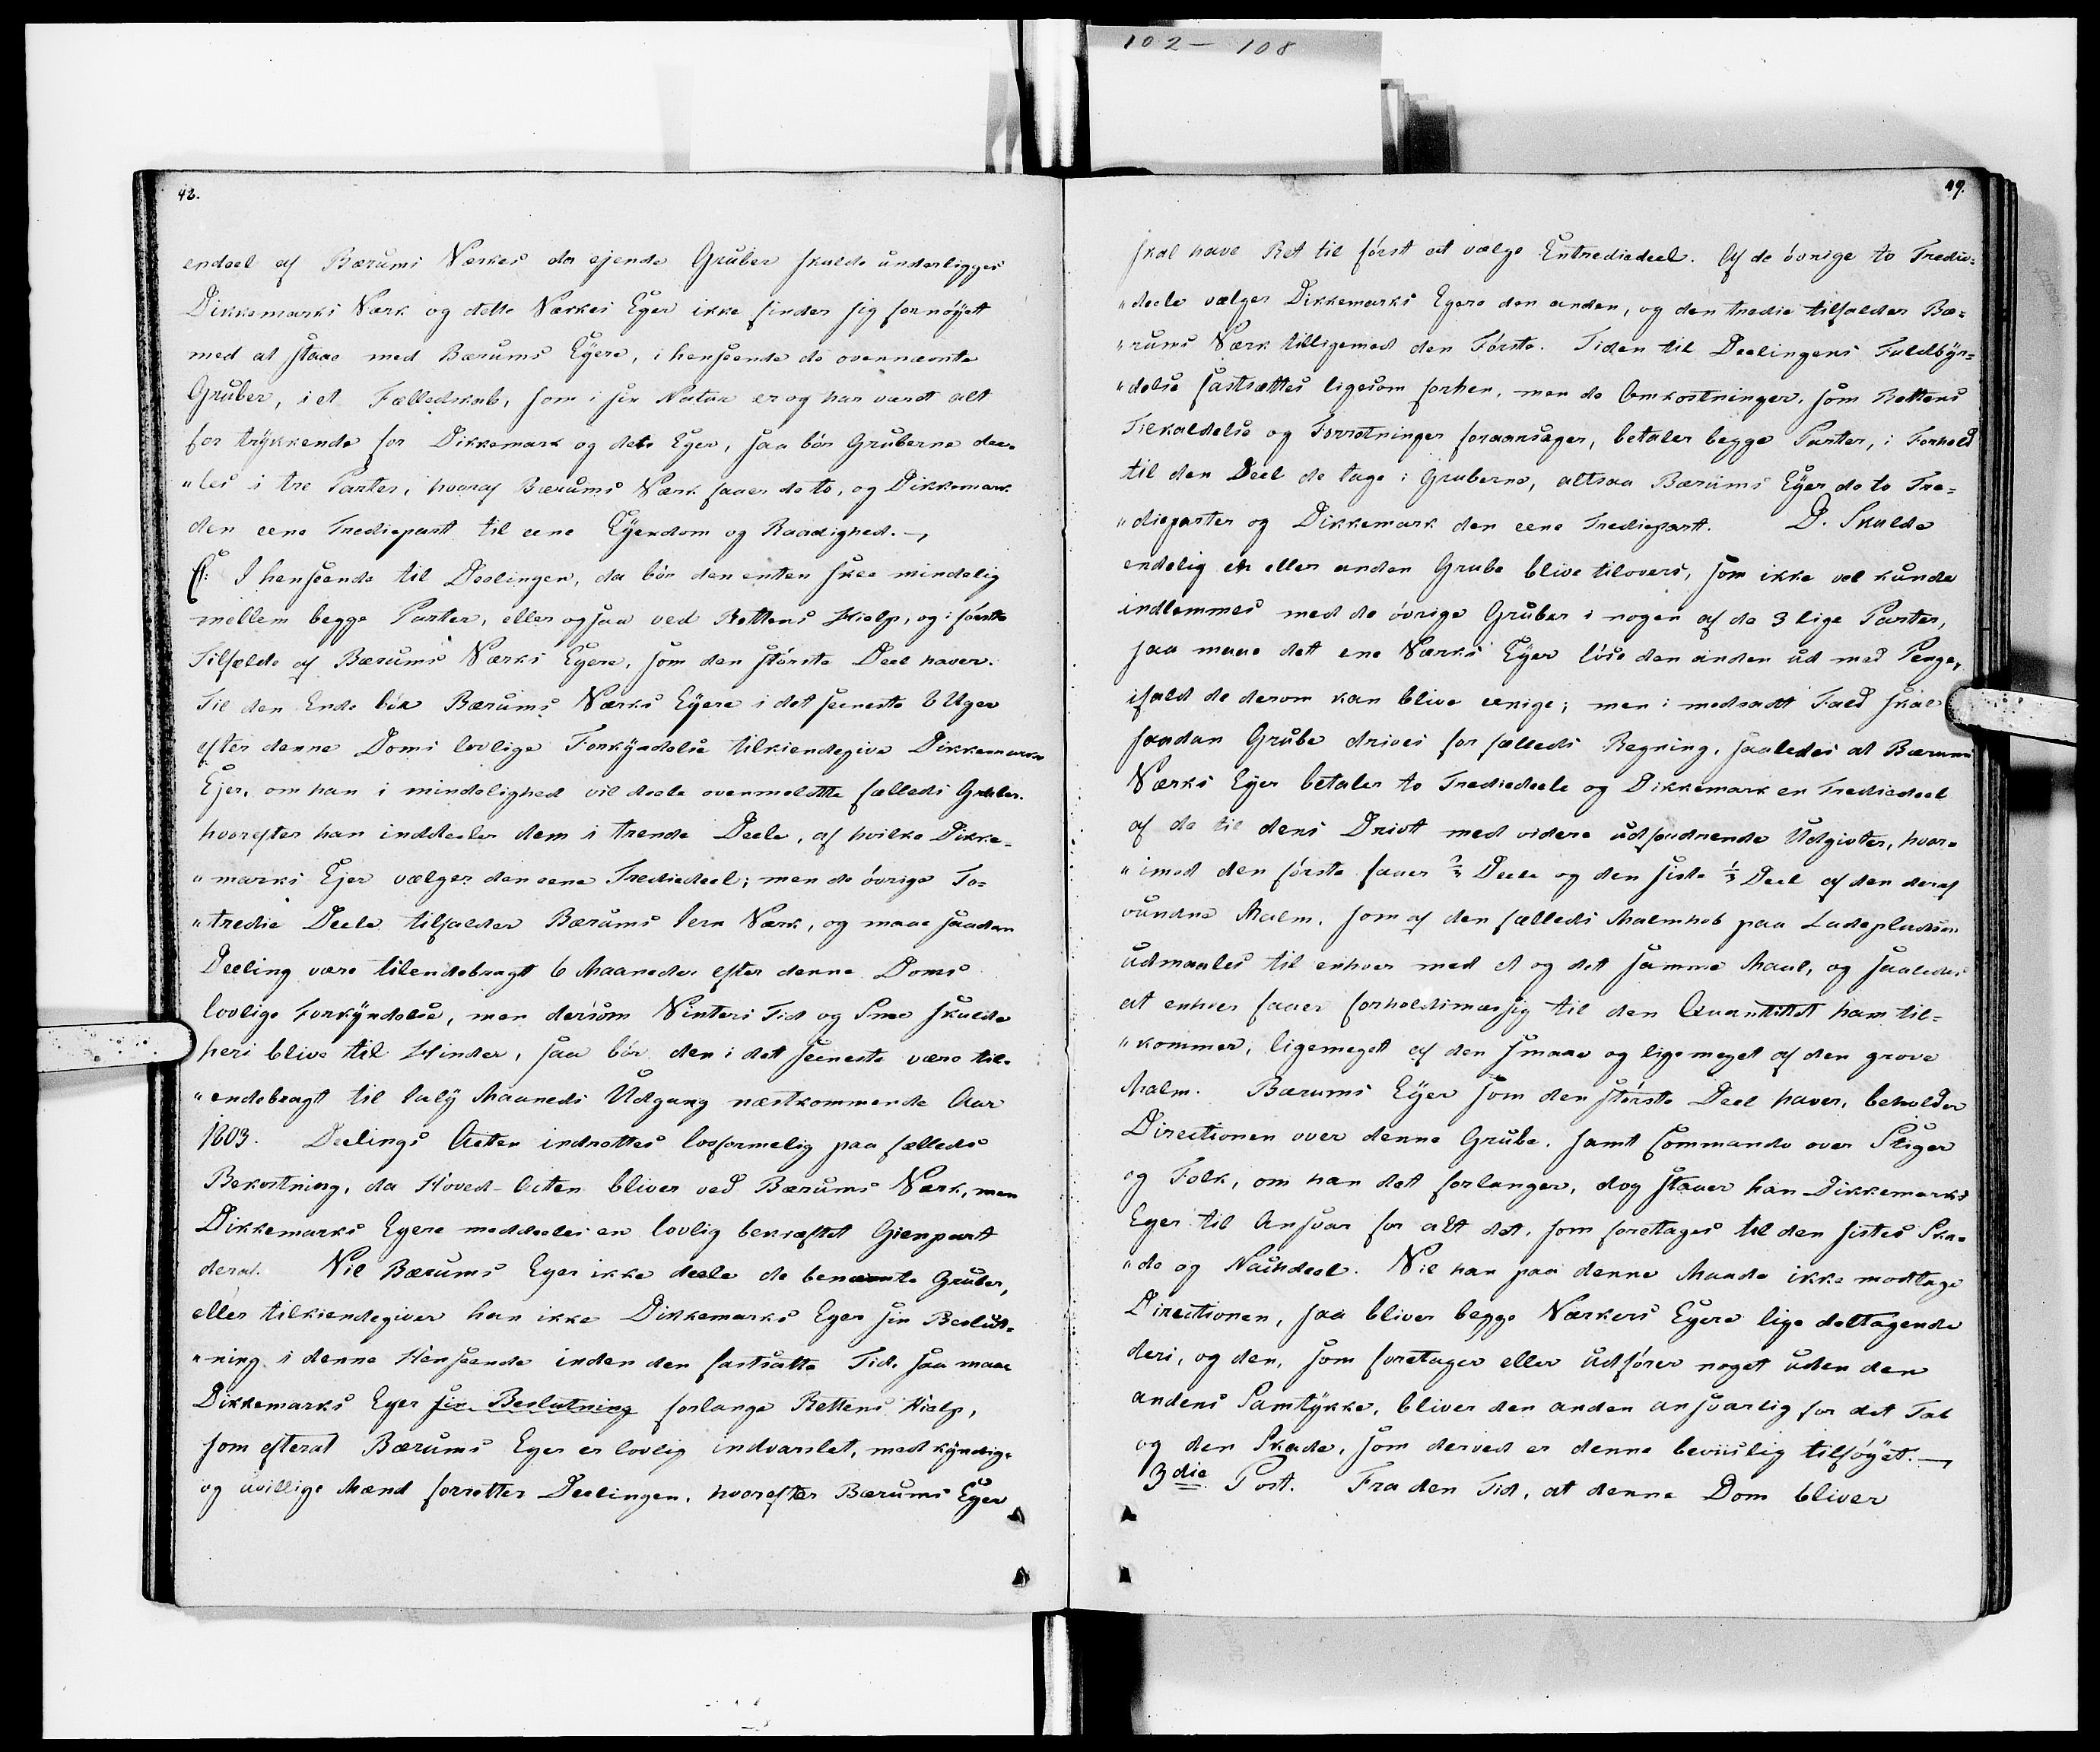 102 - 108
48.
endeel af Bærums Værkes da ejende Gruber skulde underligges
Dikkemarks Værk og dette Værkes Eyer ikke finder sig fornöyett
med at staae med Bærums Eyere, i henseende de ovennæmte
Gruber, i et Fælledskab, som i sin Natur er og har værdt alt
for trÿkkende for Dikkemark og dets Eyer, saa bör Gruberne dee-
"les i tre Parter, hvoraf Bærums Værk faaer de to, og Dikkemark
den eene Trediepart til eene Eyendom og Raadighed. –,
C: I henseende til Deelingen, da bör den enten skee mindelig
mellem begge Parter, eller og saa ved Rettens Hielp, og i förste
Tilfælde af Bærums Værks Eyere, som den störste Deel haver.
Til den Ende bör Bærums Værks Eyere i det seeneste 6 Uger
efter denne Doms lovlige Forkÿndelse tilkiendegive Dikkemarks
Ejer, om han i mindelighed vil deele ovenmeldtte fælleds Gruber.
hvorefter han inddeeler dem i trende Deele, af hvilke Dikke-
"marks Ejer vælger den eene Trediedeel; men de övrige To-
"tredie Deele tilfalder Bærums Jern Værk, og maae saadan
Deeling være tilendebragt 6 Maaneder efter denne Doms
lovlige Forkÿndelse, men dersom Vinters Tid og Snee skulde
heri blive til Hinder, saa bör den i det seeneste være til-
"endebragt til Julÿ Maaneds Udgang næstkommende Aar
1803. Deelings Acten indrettes lovformelig paa fælleds
Bekostning, da Hoved-Acten bliver ved Bærums Værk, men
Dikkemarks Eyere meddeeles en lovlig bekræftet Gienpart
deraf. Vil Bærums Eyer ikke deele de benæmte Gruber,
eller tilkiendegiver han ikke Dikkemarks Eyer sin Beslut-
"ning i denne Henseende inden den fastsatte Tid, saa maae
Dikkemarks Eyer sin Beslutning forlange Rettens Hielp,
som efterat Bærums Eyer er lovlig indvarslet, med kÿndige
og uvillige Mænd forretter Deelingen, hvorefter Bærums Eÿer
49.
skal have Ret til först at vælge Entrediedeel. Af de övrige to Tredie-
"deele vælger Dikkemarks Eyere den anden, og den tredie tilfalder Bæ-
"rums Værk tilligemed den Förste. Tiden til Deelingens Fuldbÿr-
"delse fastsættes ligesom forhen, men de Omkostninger, som Rettens
Tilkaldelse og Forretninger foraarsager, betaler begge Parter, i Forhold
til den Deel de tage i Gruberne, altsaa Bærums Eÿer de to Tre-
"dieparter og Dikkemark den eene Trediepart. D. Skulde
endelig en eller anden Grube blive tilovers, som ikke vel kunde
indlemmes med de övrige Gruber i nogen af de 3 lige Parter,
saa maae dett ene Værks Eÿer löse den anden ud med Penge,
ifald de derom kan blive eenige; men i modsadt Fald skal
saadan Grube drives for fælleds Regning, saaledes at Bærums
Værks Eyer betaler to Trediedeele og Dikkemark en Trediedeel
af de til dens Drivt med videre udfordrende Udgivter, hvor-
"imod den förste faaer ⅔ Deele og den sidste ⅓ Deel af den deraf
vundne Malm, som af den fælleds Malmhob paa Ladepladsen
udmaales til enhver med et og det samme Maal, og saaledes
at enhver faaer forholdsmæssig til den Quantitet ham til-
"kommer, ligemeget af den smaae og ligemeget af den grove
Malm. Bærums Eÿer som den störste Deel haver, beholder
Directionen over denne Grube, samt Commando over Stiger
og Folk, om han det forlanger, dog staaer han Dikkemarks
Eyer til Ansvar for alt det, som foretages til den sistes Ska-
"de og Nachdeel. Vil han paa denne Maade ikke modtage
Directionen, saa bliver begge Værkers Eÿere lige deeltagende
deri, og den, som foretager eller udförer noget uden den
andens Samtÿkke, bliver den anden ansvarlig for det Tab
og den Skade, som derved er denne beviislig tilföÿet. –,
3die Post. Fra den Tid, at denne Dom bliver